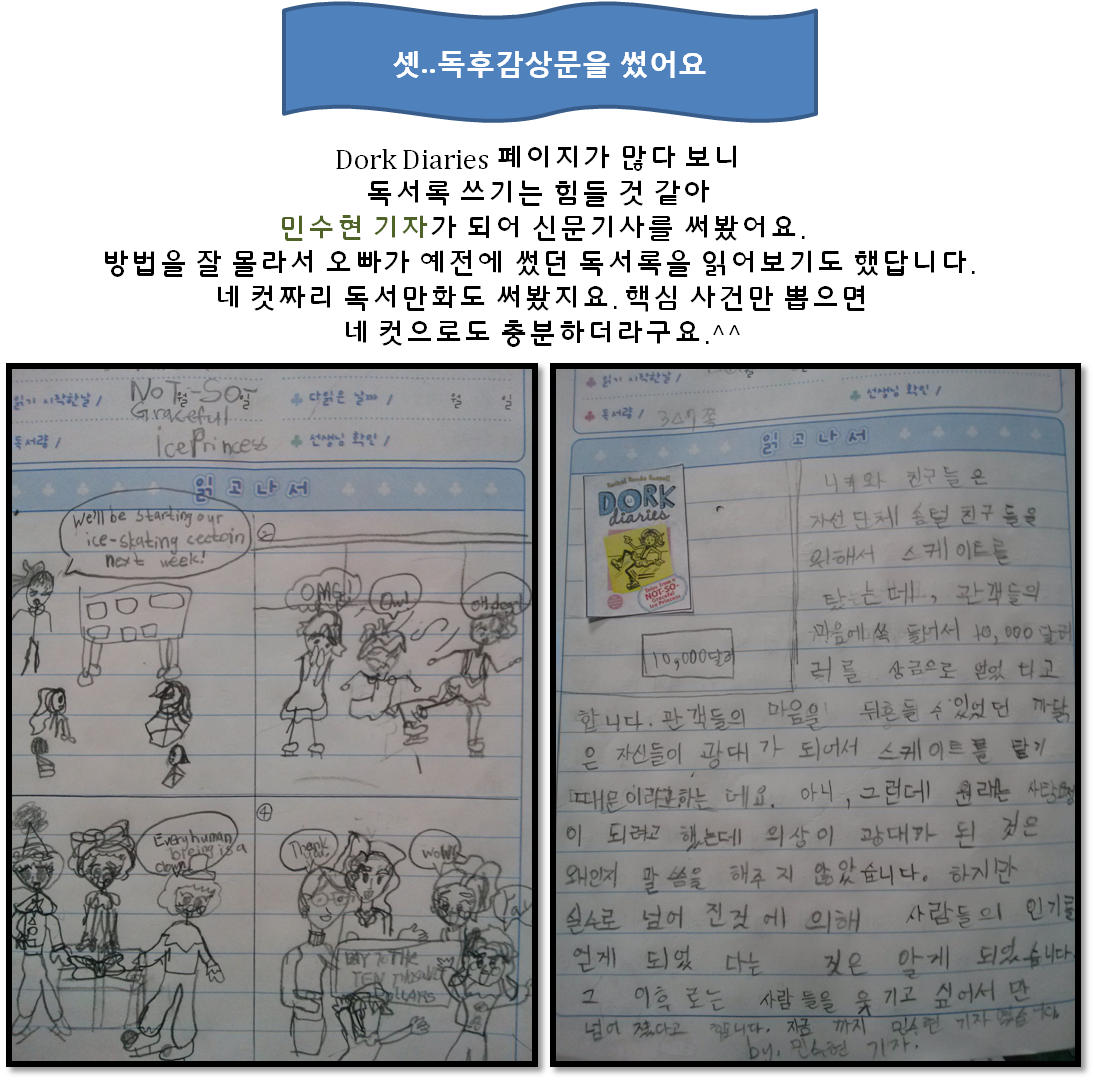 셋..독후감상문을 썼어요
Dork Diaries 페이지가 많다 보니
독서록 쓰기는 힘들 것 같아
민수현 기자가 되어 신문기사를 써봤어요.
방법을 잘 몰라서 오빠가 예전에 썼던 독서록을 읽어보기도 했답니다.
네 컷짜리 독서만화도 써봤지요. 핵심 사건만 뽑으면
네 컷으로도 충분하더라구요.^^
읽기 시작한날 / 월 일
다읽은 날짜 / 월 일
NOT-SO-
Graceful
Ice Princess
독서량 /
선생님 확인 /
읽고나서
We'll be starting our
ice-skating
next week!
②
OMG!
Ow!
Every human
being is a
④
Thank
you
WOW!
PAY TO THE
TEN
읽기 시작한날 /
독서량 / 347쪽
선생님 확인 /
읽고나서
DORK
diaries
NOT-SO-
Graceful
Ice Princess
10,000달러
니키와 친구들은
자선단체 친구들을
위해서 스케이트를
탔는데, 관객들의
마음에 쏙 들어서 10,000달러
를 상금으로 얻었다고
합니다. 관객들의 마음을 뒤흔들 수 있었던 까닭
은 자신들이 광대가 되어서 스케이트를 탔기
때문이라고하는데요. 아니, 그런데 원래는
이 되려고 했는데 의상이 광대가 된 것은
왜인지 말씀을 해주지 않았습니다. 하지만
실수로 넘어진것에 의해 사람들의 인기를
얻게 되었다는 것은 알게 되었습니다.
그 이후로는 사람들을 웃기고 싶어서 만
넘어졌다고 합니다. 지금까지 민수현 기자였습니다.
by. 민수현 기자.